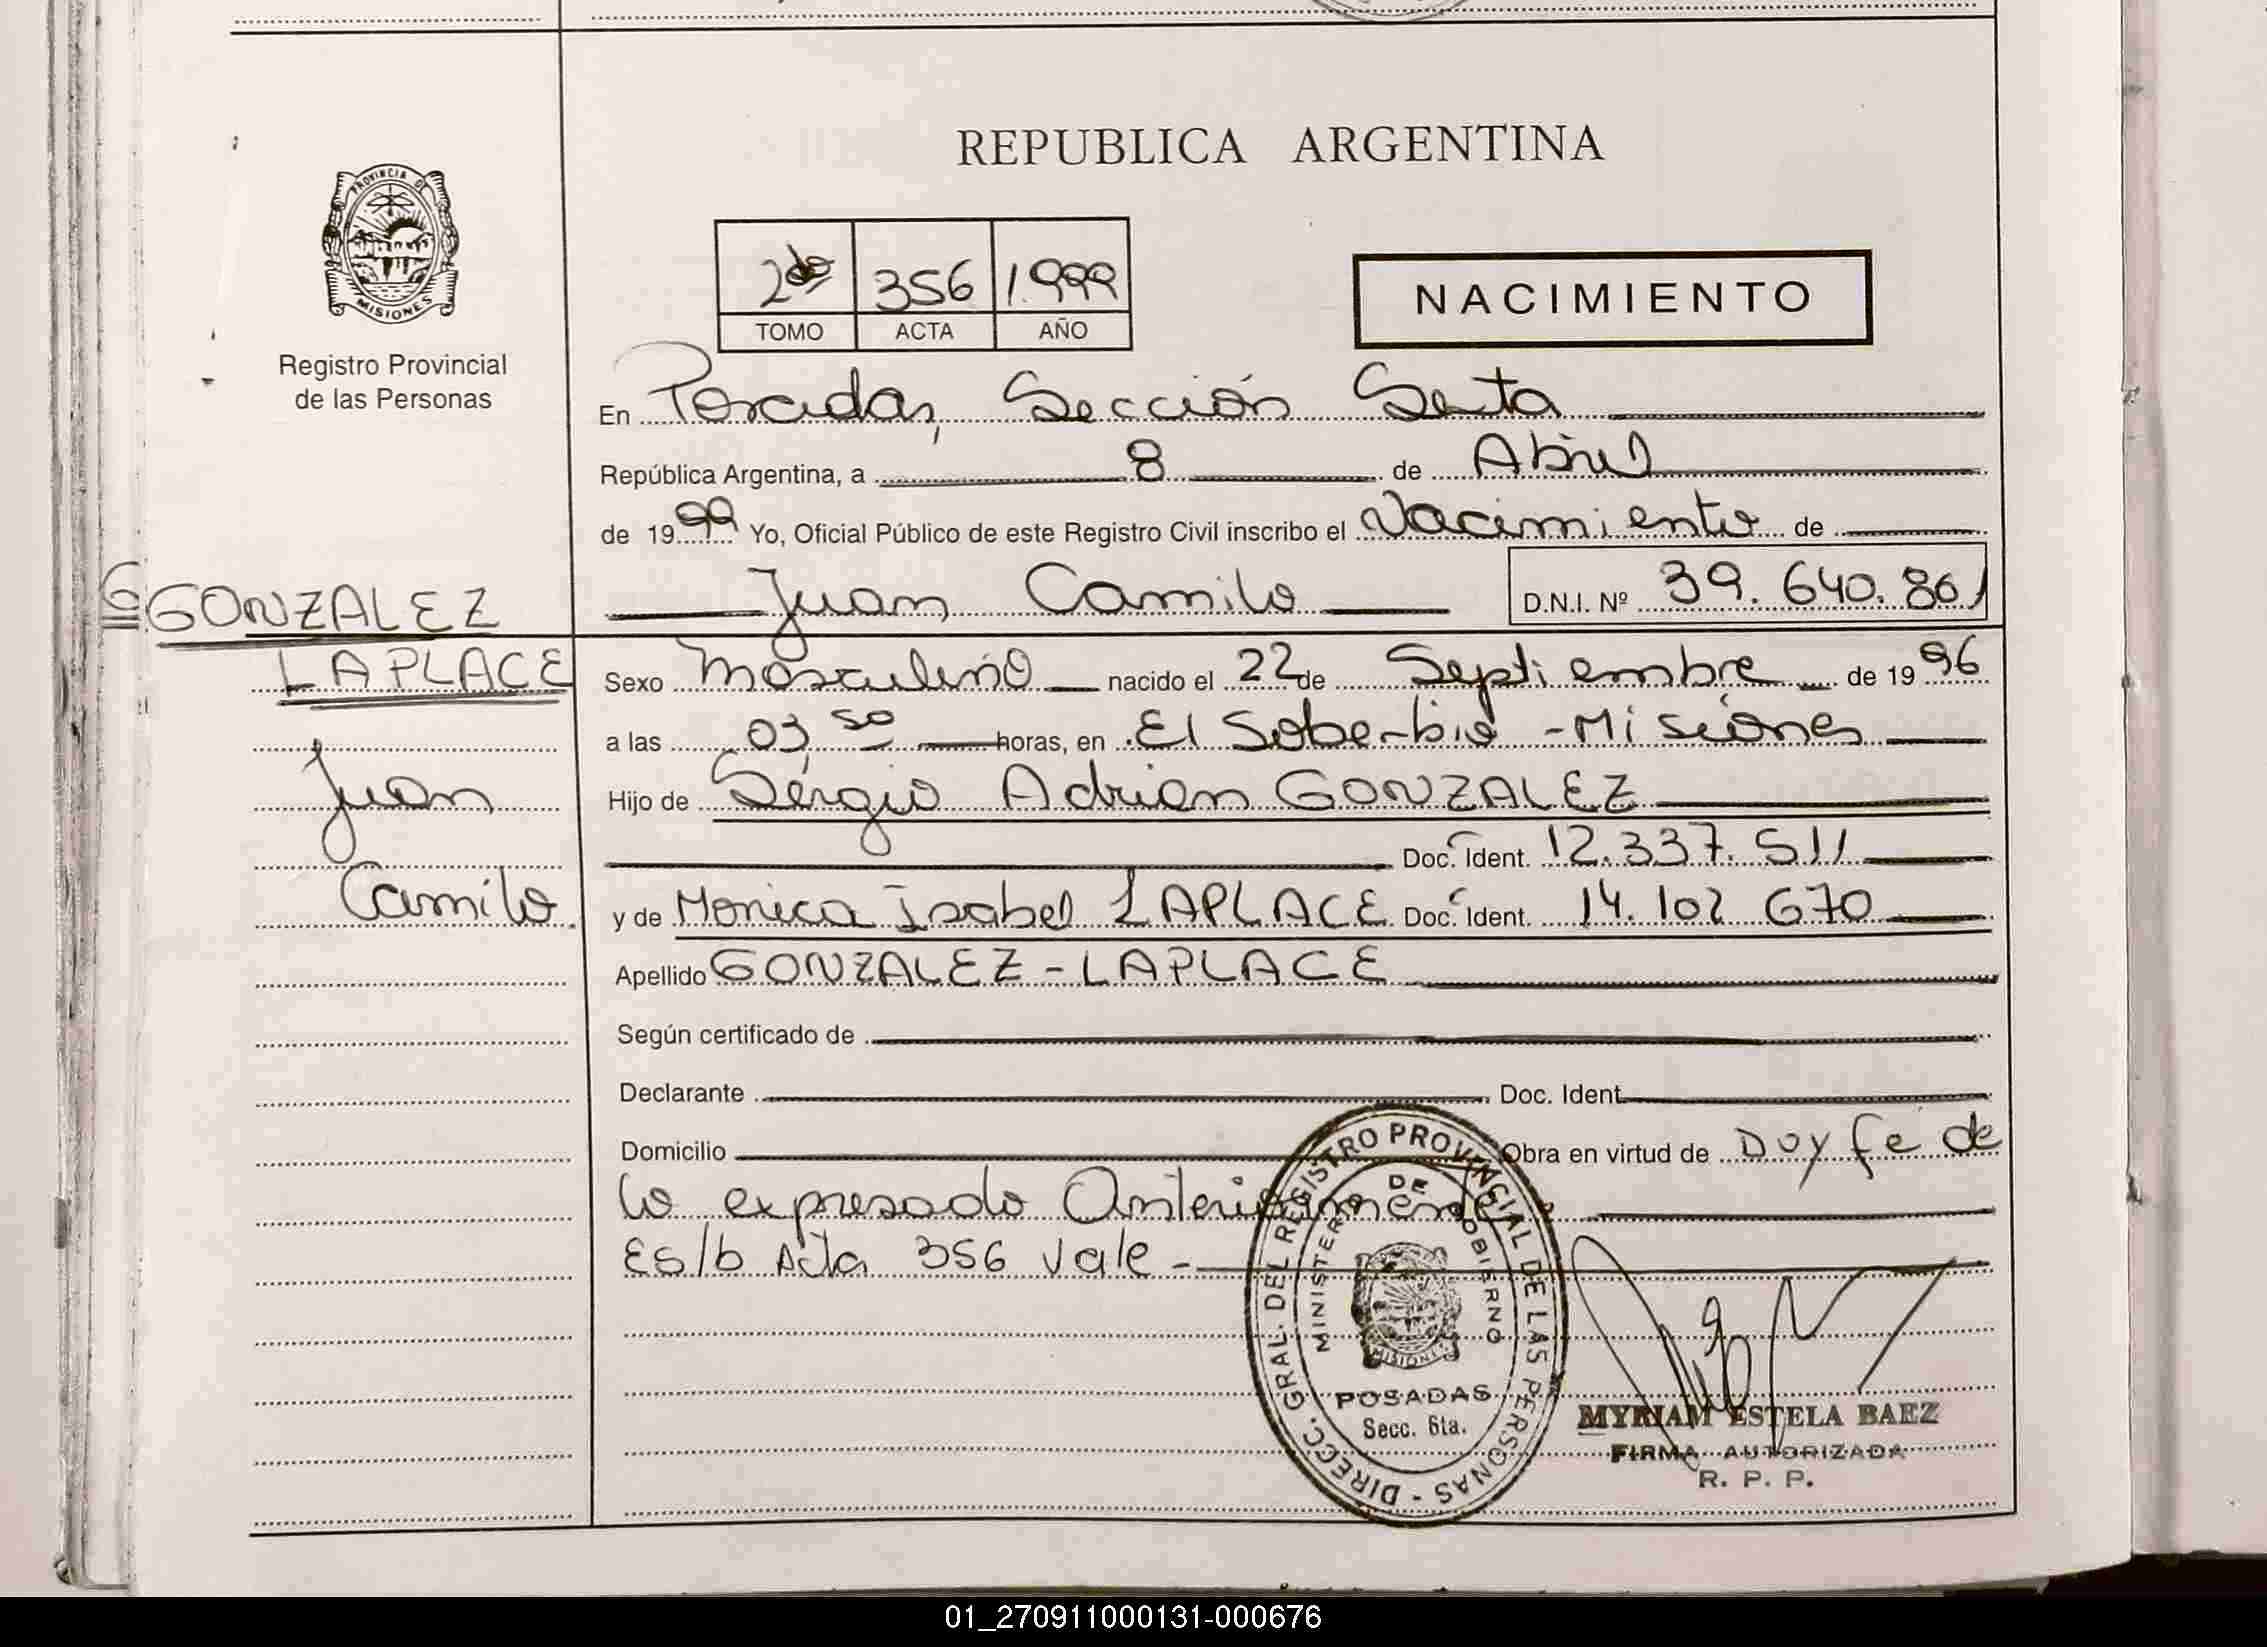 REPUBLICA ARGENTINA
PROVINCIA DE
MISIONES
Registro Provincial
de las Personas
2do 356 1.999
TOMO ACTA AÑO
NACIMIENTO
En Posadas, Sección Sexta
República Argentina, a 8 de Abril
de 1999 Yo, Oficial Público de este Registro Civil inscribo el Nacimiento de
Juan Camilo D.N.I. Nº 39.640.861
G GONZALEZ
LAPLACE
Juan
Camilo
Sexo Masculino nacido el 22 de Septiembre de 1996
a las 03,50 horas, en El Soberbio - Misiones
Hijo de Sergio Adrian GONZALEZ
Doc. Ident. 12.337.511
y de Monica Isabel LAPLACE Doc. Ident. 14.102 670
Apellido GONZALEZ - LAPLACE
Según certificado de
Declarante Doc. Ident.
Domicilio Obra en virtud de Doy fe de
lo expresado Anteriormente
Es/b Acta 356 vale -
DIRECC. GRAL. DEL REGISTRO PROVINCIAL DE LAS PERSONAS -
MINISTERIO DE GOBIERNO
MISIONES
POSADAS
Secc. 6ta.
MYRIAM ESTELA BAEZ
FIRMA AUTORIZADA
R. P. P.
01_270911000131-000676